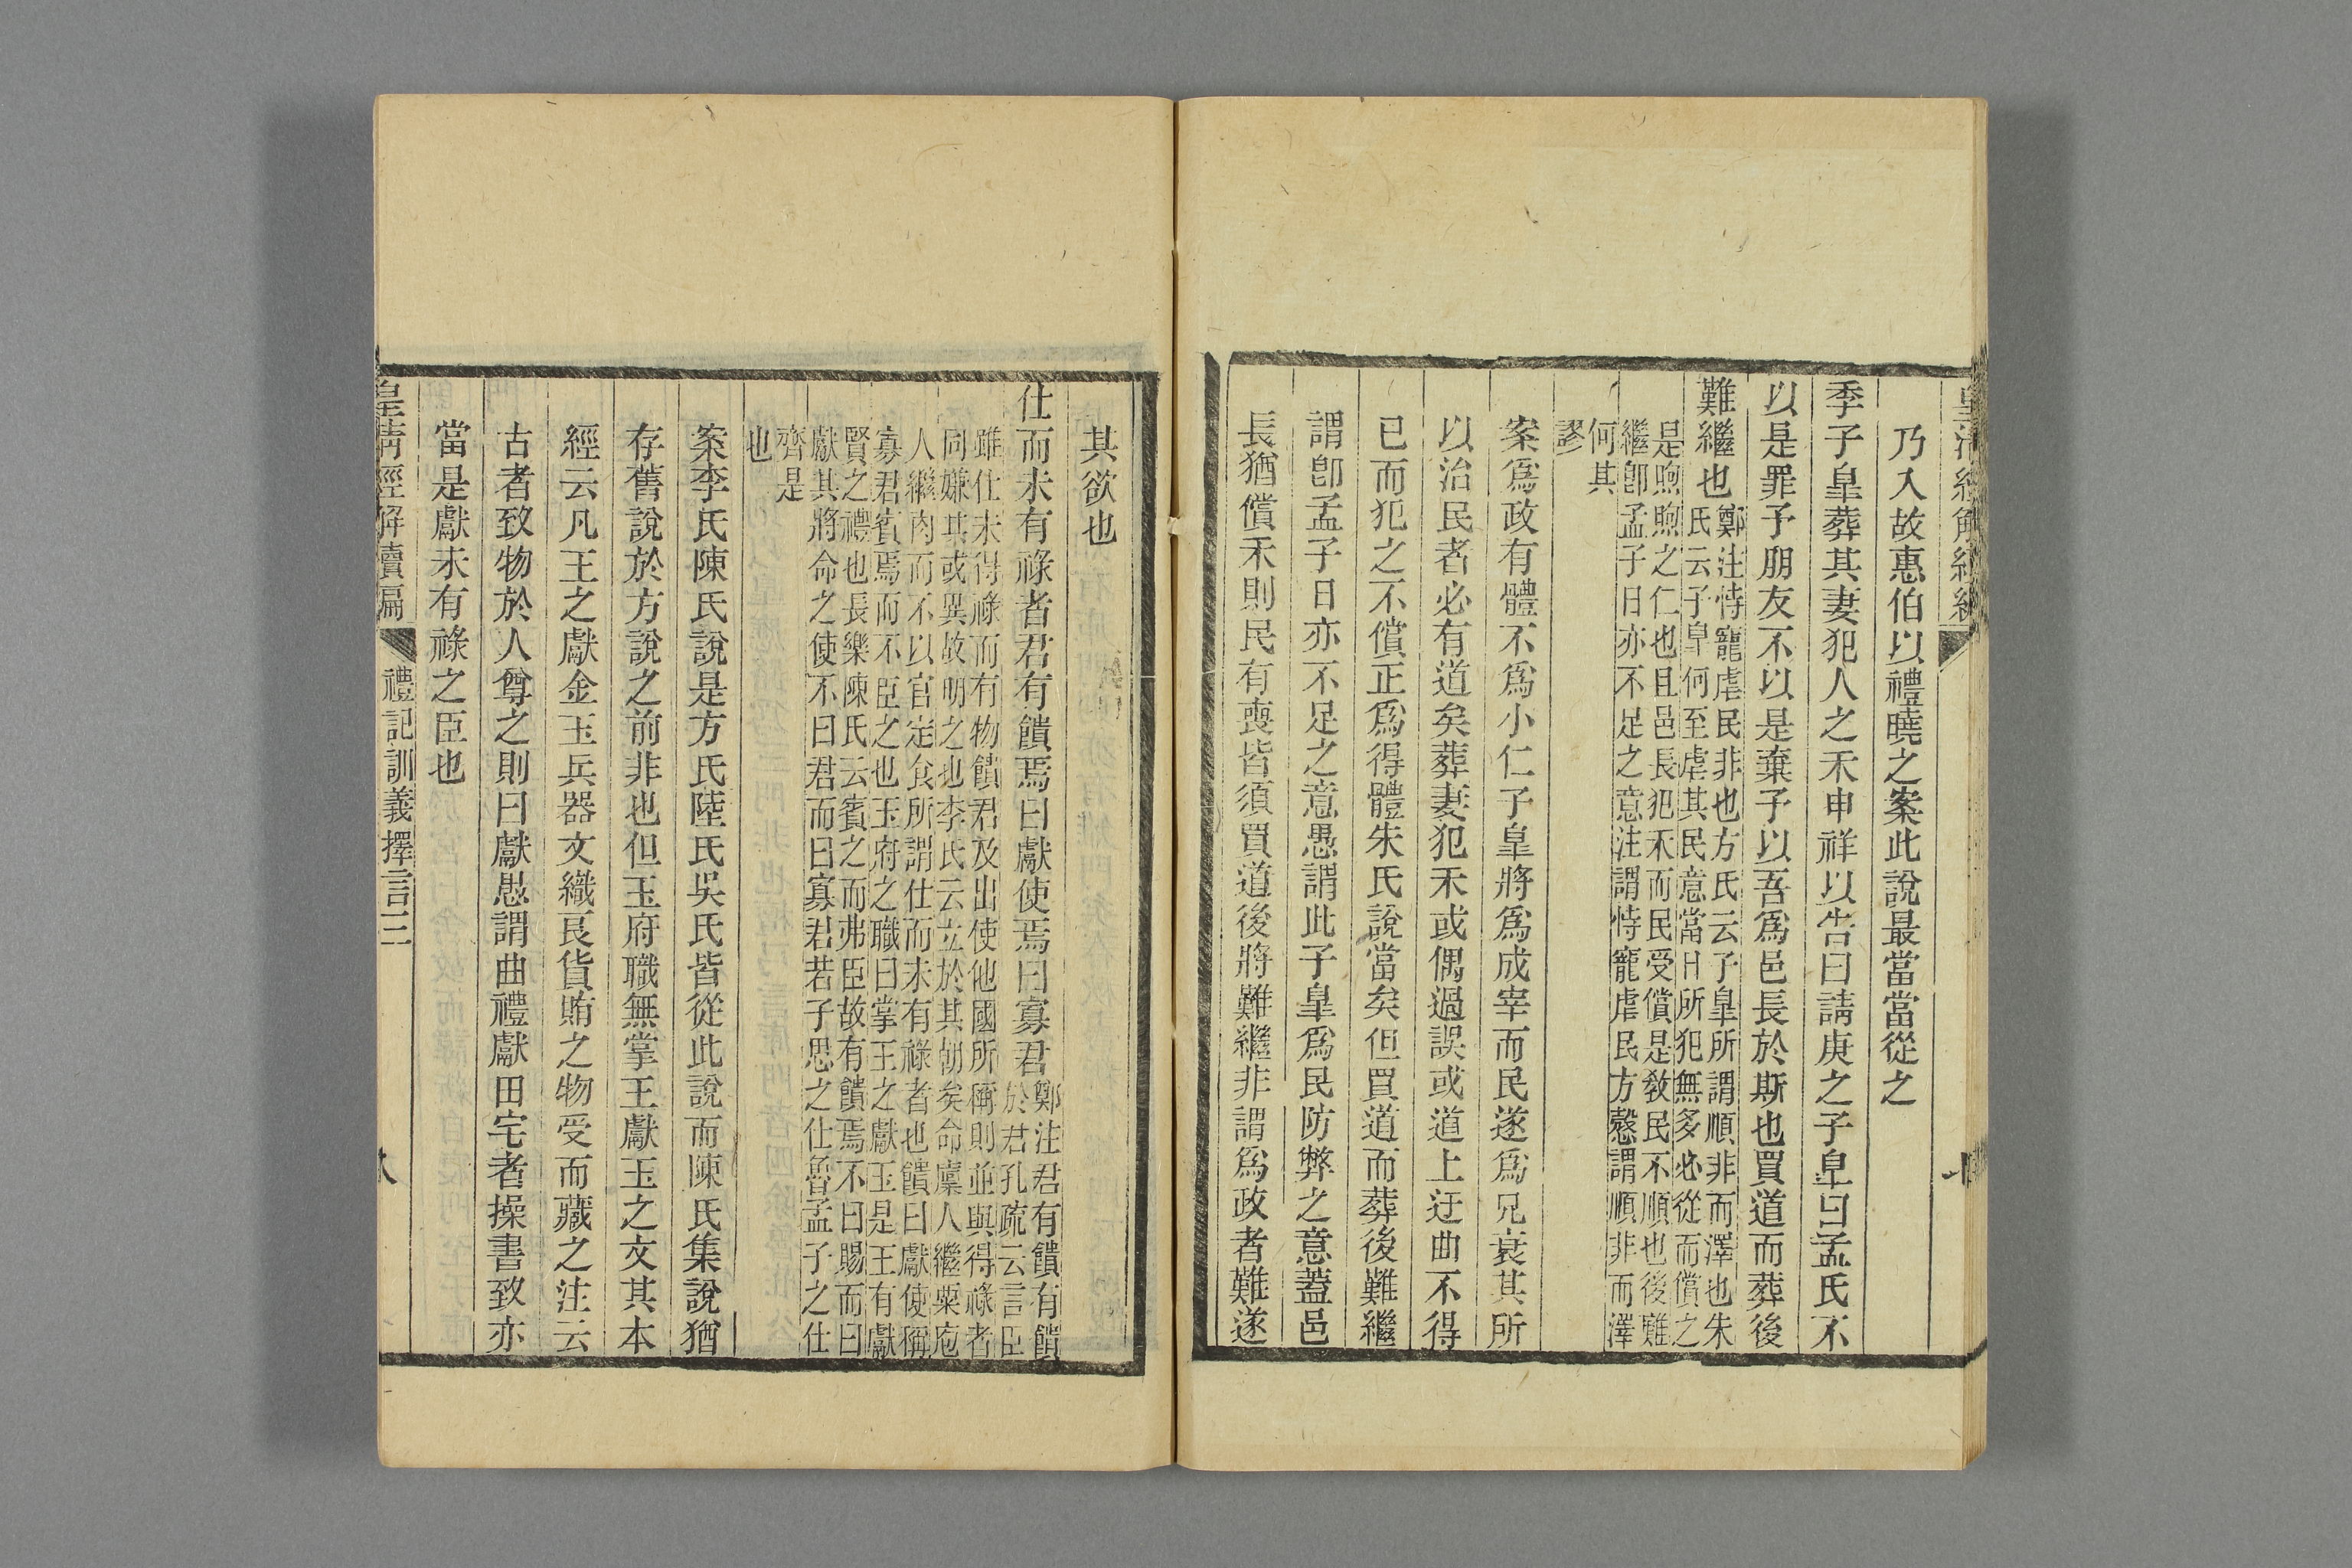 乃入故惠伯以禮曉之案此說最當當從之
季子臯葬其妻犯人之禾申祥以告曰請庚之子臯曰孟氏不
以是罪予朋友不以是棄予以吾爲邑長於斯也買道而葬後
難繼也
鄭注恃寵虐民非也方氏云子臯所謂順非而澤也朱
氏云子臯何至虐其民意當日所犯無多必從而償之
是煦煦之仁也且邑長犯禾而民受償是敎民不順也後難
繼卽孟子日亦不足之意注謂恃寵虐民方慤謂順非而澤
何其
謬
案爲政有體不爲小仁子臯將爲成宰而民遂爲兄衰其所
以治民者必有道矣葬妻犯禾或偶過誤或道上迂曲不得
已而犯之不償正爲得體朱氏說當矣但買道而葬後難繼
謂卽孟子日亦不足之意愚謂此子臯爲民防弊之意蓋邑
長猶償禾則民有喪皆須買道後將難繼非謂爲政者難遂
其欲也
仕而未有祿者君有饋焉曰獻使焉曰寡君
鄭注君有饋有饋
於君孔疏云言臣
雖仕未得祿而有物饋君及出使他國所稱則並與得祿者
同嫌其或異故明之也李氏云立於其朝矣命廩人繼粟庖
人繼肉而不以官定食所謂仕而未有祿者也饋曰獻使稱
寡君賓焉而不臣之也玉府之職曰掌王之獻玉是王有獻
賢之禮也長樂陳氏云賓之而弗臣故有饋焉不曰賜而曰
獻其將命之使不曰君而曰寡君若子思之仕魯孟子之仕
齊是
也
案李氏陳氏說是方氏陸氏吳氏皆從此說而陳氏集說猶
存舊說於方說之前非也但玉府職無掌王獻玉之文其本
經云凡王之獻金玉兵器文織良貨賄之物受而藏之注云
古者致物於人尊之則曰獻愚謂曲禮獻田宅者操書致亦
當是獻未有祿之臣也
皇淸經解續編
禮記訓義擇言三